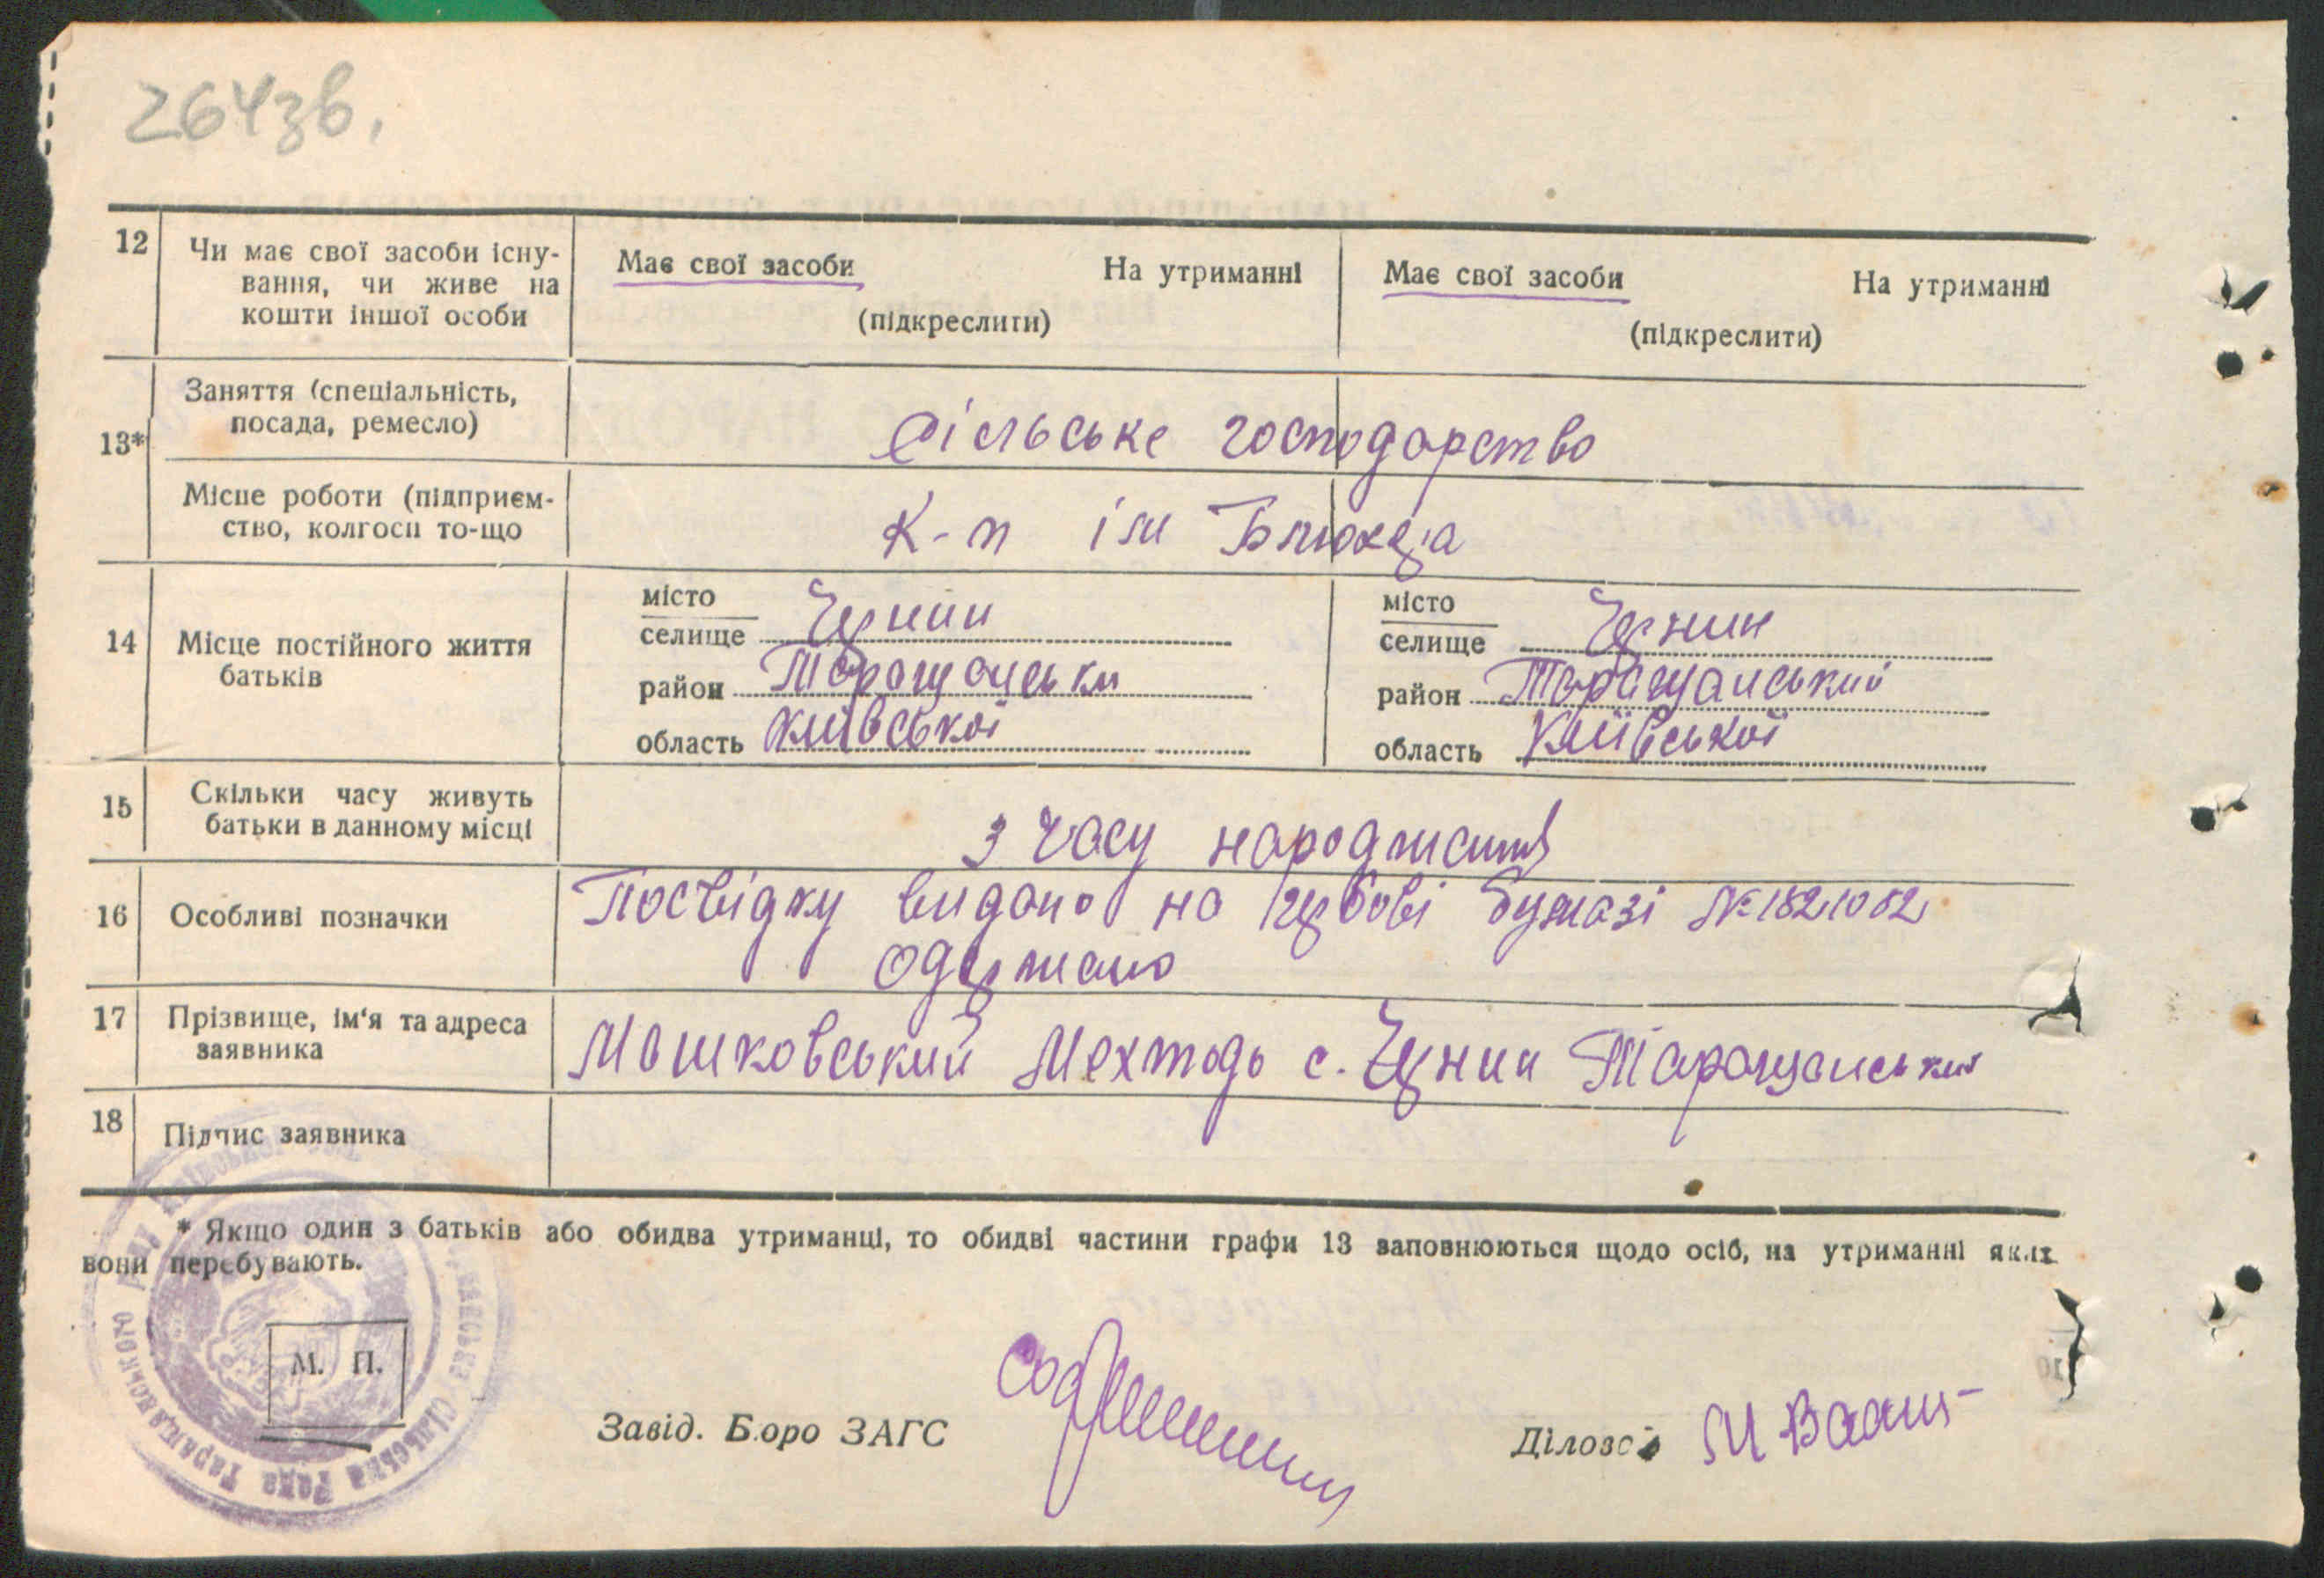 264зв.
12
Чи має свої засоби існу-
вання, чи живе на
кошти іншої особи
Має свої засоби На утриманні
(підкреслити)
Має свої засоби На утриманні
(підкреслити)
13*
Заняття (спеціальність,
посада, ремесло)
Сільське господарство
Місце роботи (підприєм-
ство, колгосп то-що
К-п ім Блюхера
14
Місце постійного життя
батьків
місто
селище Чернин
район Таращанськи
область Київської
місто
селище Чернин
район Таращанський
область Київської
15
Скільки часу живуть
батьки в данному місці
З часу народження
16
Особливі позначки
Посвідку видано на гербові бумазі № 1821082
одержано
17
Прізвище, ім'я та адреса
заявника
Машковський Мехтодь с. Чернин Таращанський
18
Підпис заявника
* Якщо один з батьків або обидва утриманці, то обидві частини графи 13 заповнюються щодо осіб, на утриманні яких
вони перебувають.
М. П.
сільська Рада Таращанського
Завід. Бюро ЗАГС
Діловод